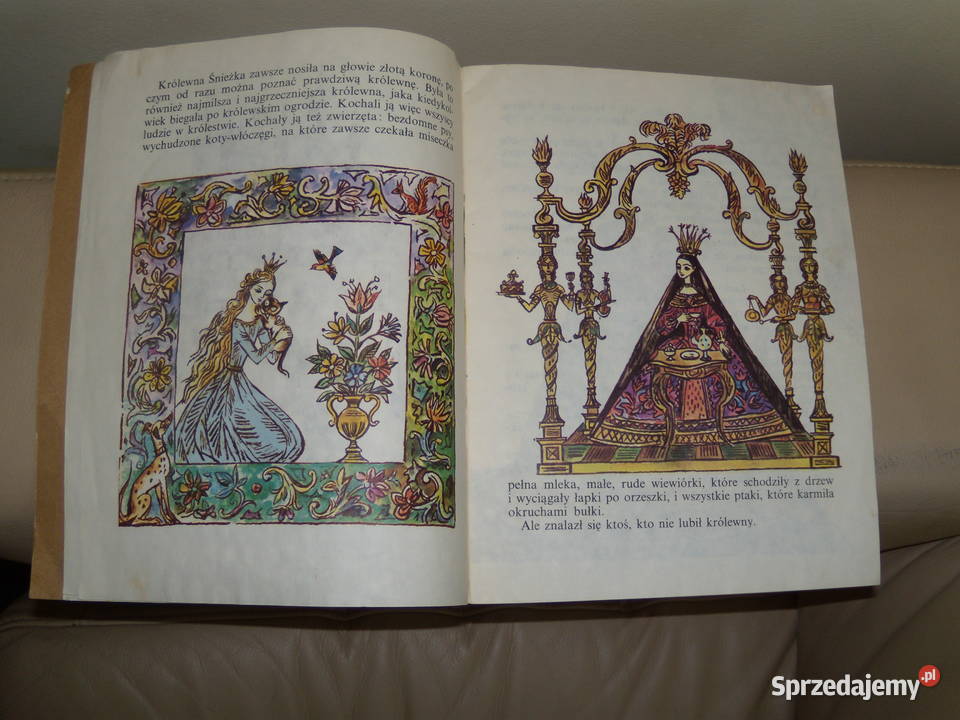 Królewna Śnieżka zawsze nosiła na głowie złotą koronę, po
czym od razu można poznać prawdziwą królewnę. Była to
również najmilsza i najgrzeczniejsza królewna, jaka kiedykol-
wiek biegała po królewskim ogrodzie. Kochali ją więc wszyscy
ludzie w królestwie. Kochały ją też zwierzęta: bezdomne psy,
wychudzone koty-włóczęgi, na które zawsze czekała miseczka
pełna mleka, małe, rude wiewiórki, które schodziły z drzew
i wyciągały łapki po orzeszki, i wszystkie ptaki, które karmiła
okruchami bułki.
Ale znalazł się ktoś, kto nie lubił królewny.
Sprzedajemy.pl